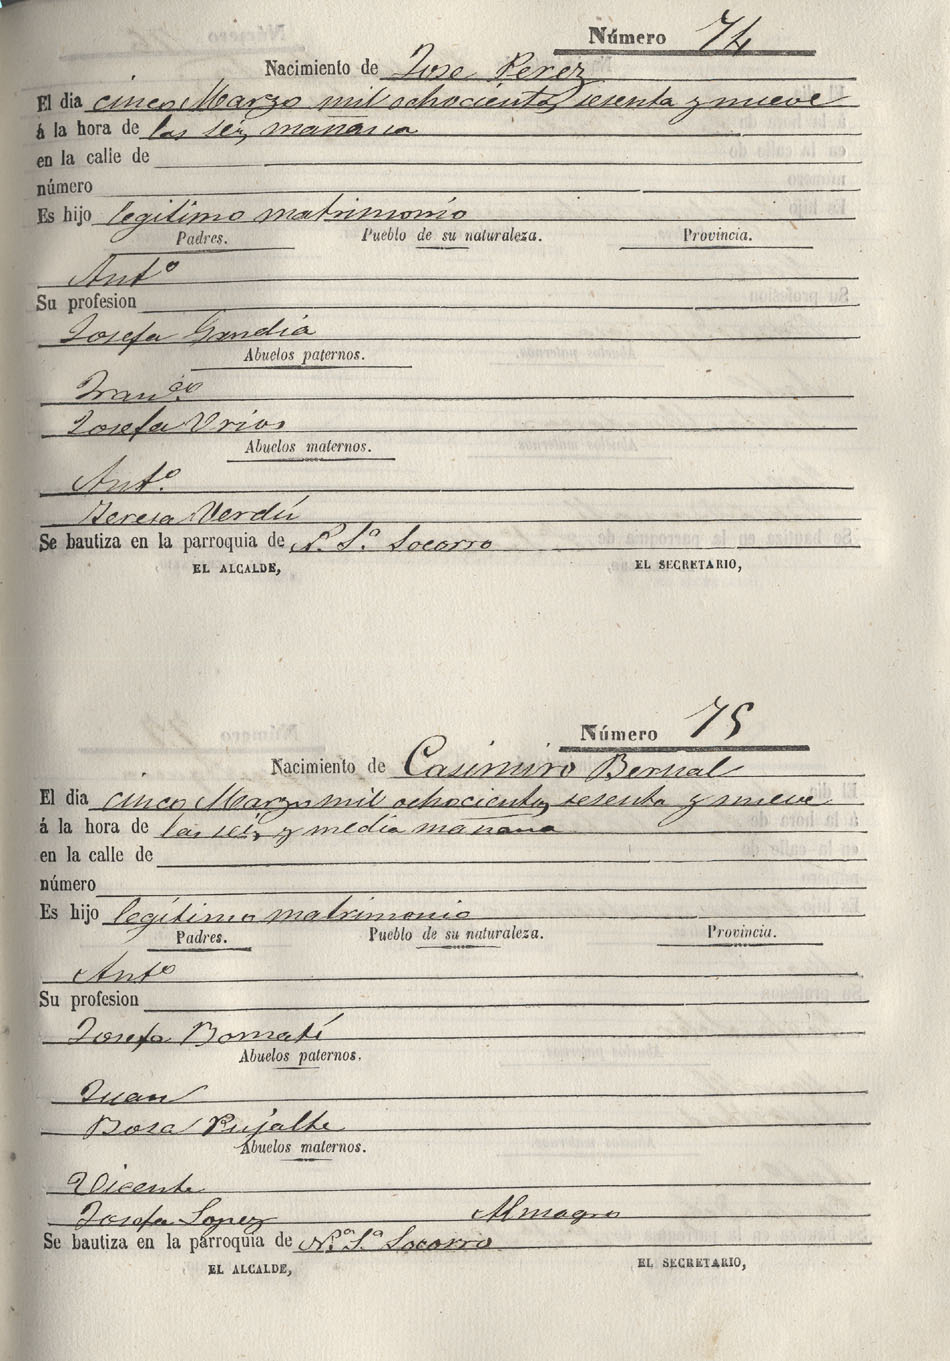 Número 74
Nacimiento de Jose Perez
El dia cinco Marzo mil ochocientos sesenta y nueve
á la hora de las seis mañana
en la calle de
número
Es hijo legitimo matrimonio
Padres. Pueblo de su naturaleza. Provincia.
Antº
Su profesion
Josefa Gandia
Abuelos paternos.
Franco.
Josefa Urios
Abuelos maternos.
Antº.
Teresa Verdú
Se bautiza en la parroquia de N.ª S.ª Socorro
EL ALCALDE, EL SECRETARIO,
Número 75
Nacimiento de Casimiro Bernal
El dia cinco Marzo mil ochocientos sesenta y nueve
á la hora de las seis y media mañana
en la calle de
número
Es hijo legítimo matrimonio
Padres. Pueblo de su naturaleza. Provincia.
Antº
Su profesion
Josefa Bernatí
Abuelos paternos.
Juan
Rosa Pujalte
Abuelos maternos.
Vicente
Josefa Lopez Almagro
Se bautiza en la parroquia de N.ª S.ª Socorro
EL ALCALDE, EL SECRETARIO,